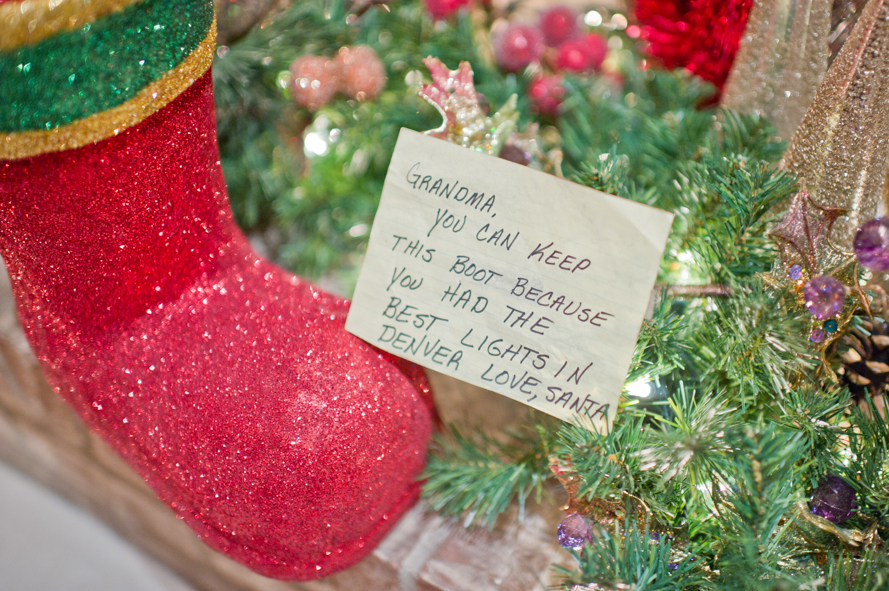 GRANDMA,
YOU CAN KEEP
THIS BOOT BECAUSE
YOU HAD THE
BEST LIGHTS IN
DENVER LOVE, SANTA